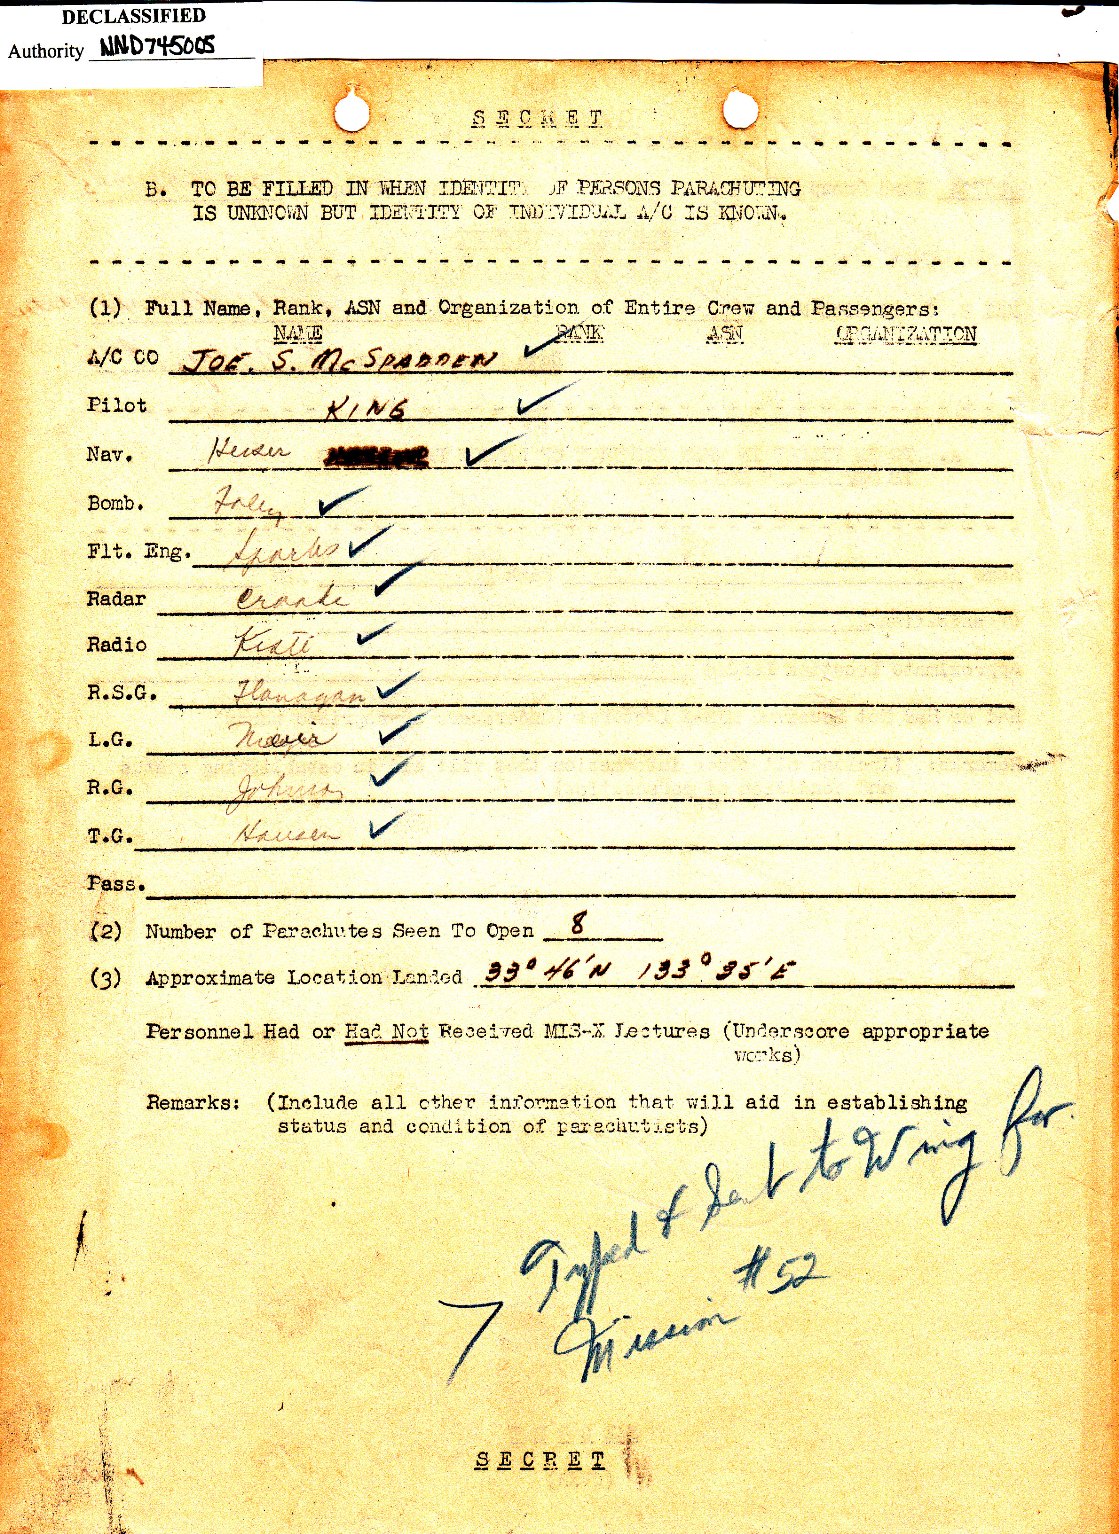 DECLASSIFIED
Authority NND745005
SECRET
B. TO BE FILLED IN WHEN IDENTITY OF PERSONS PARACHUTING
IS UNKNOWN BUT IDENTITY OF INDIVIDUAL A/C IS KNOWN.
(1) Full Name, Rank, ASN and Organization of Entire Crew and Passengers:
NAME RANK ASN ORGANIZATION
A/C CO JOE. S. McSPADDEN ✓
Pilot KING ✓
Nav. ✓
Bomb. Foley ✓
Flt. Eng. Sparks ✓
Radar ✓
Radio ✓
R.S.G. Flanagan ✓
L.G. ✓
R.G. Johnson ✓
T.G. Hansen ✓
Pass.
(2) Number of Parachutes Seen To Open 8
(3) Approximate Location Landed 33° 46'N 133° 35'E
Personnel Had or Had Not Received MIS-X Lectures (Underscore appropriate
works)
Remarks: (Include all other information that will aid in establishing
status and condition of parachutists)
Typed & Sent to Wing for
Mission #52
SECRET